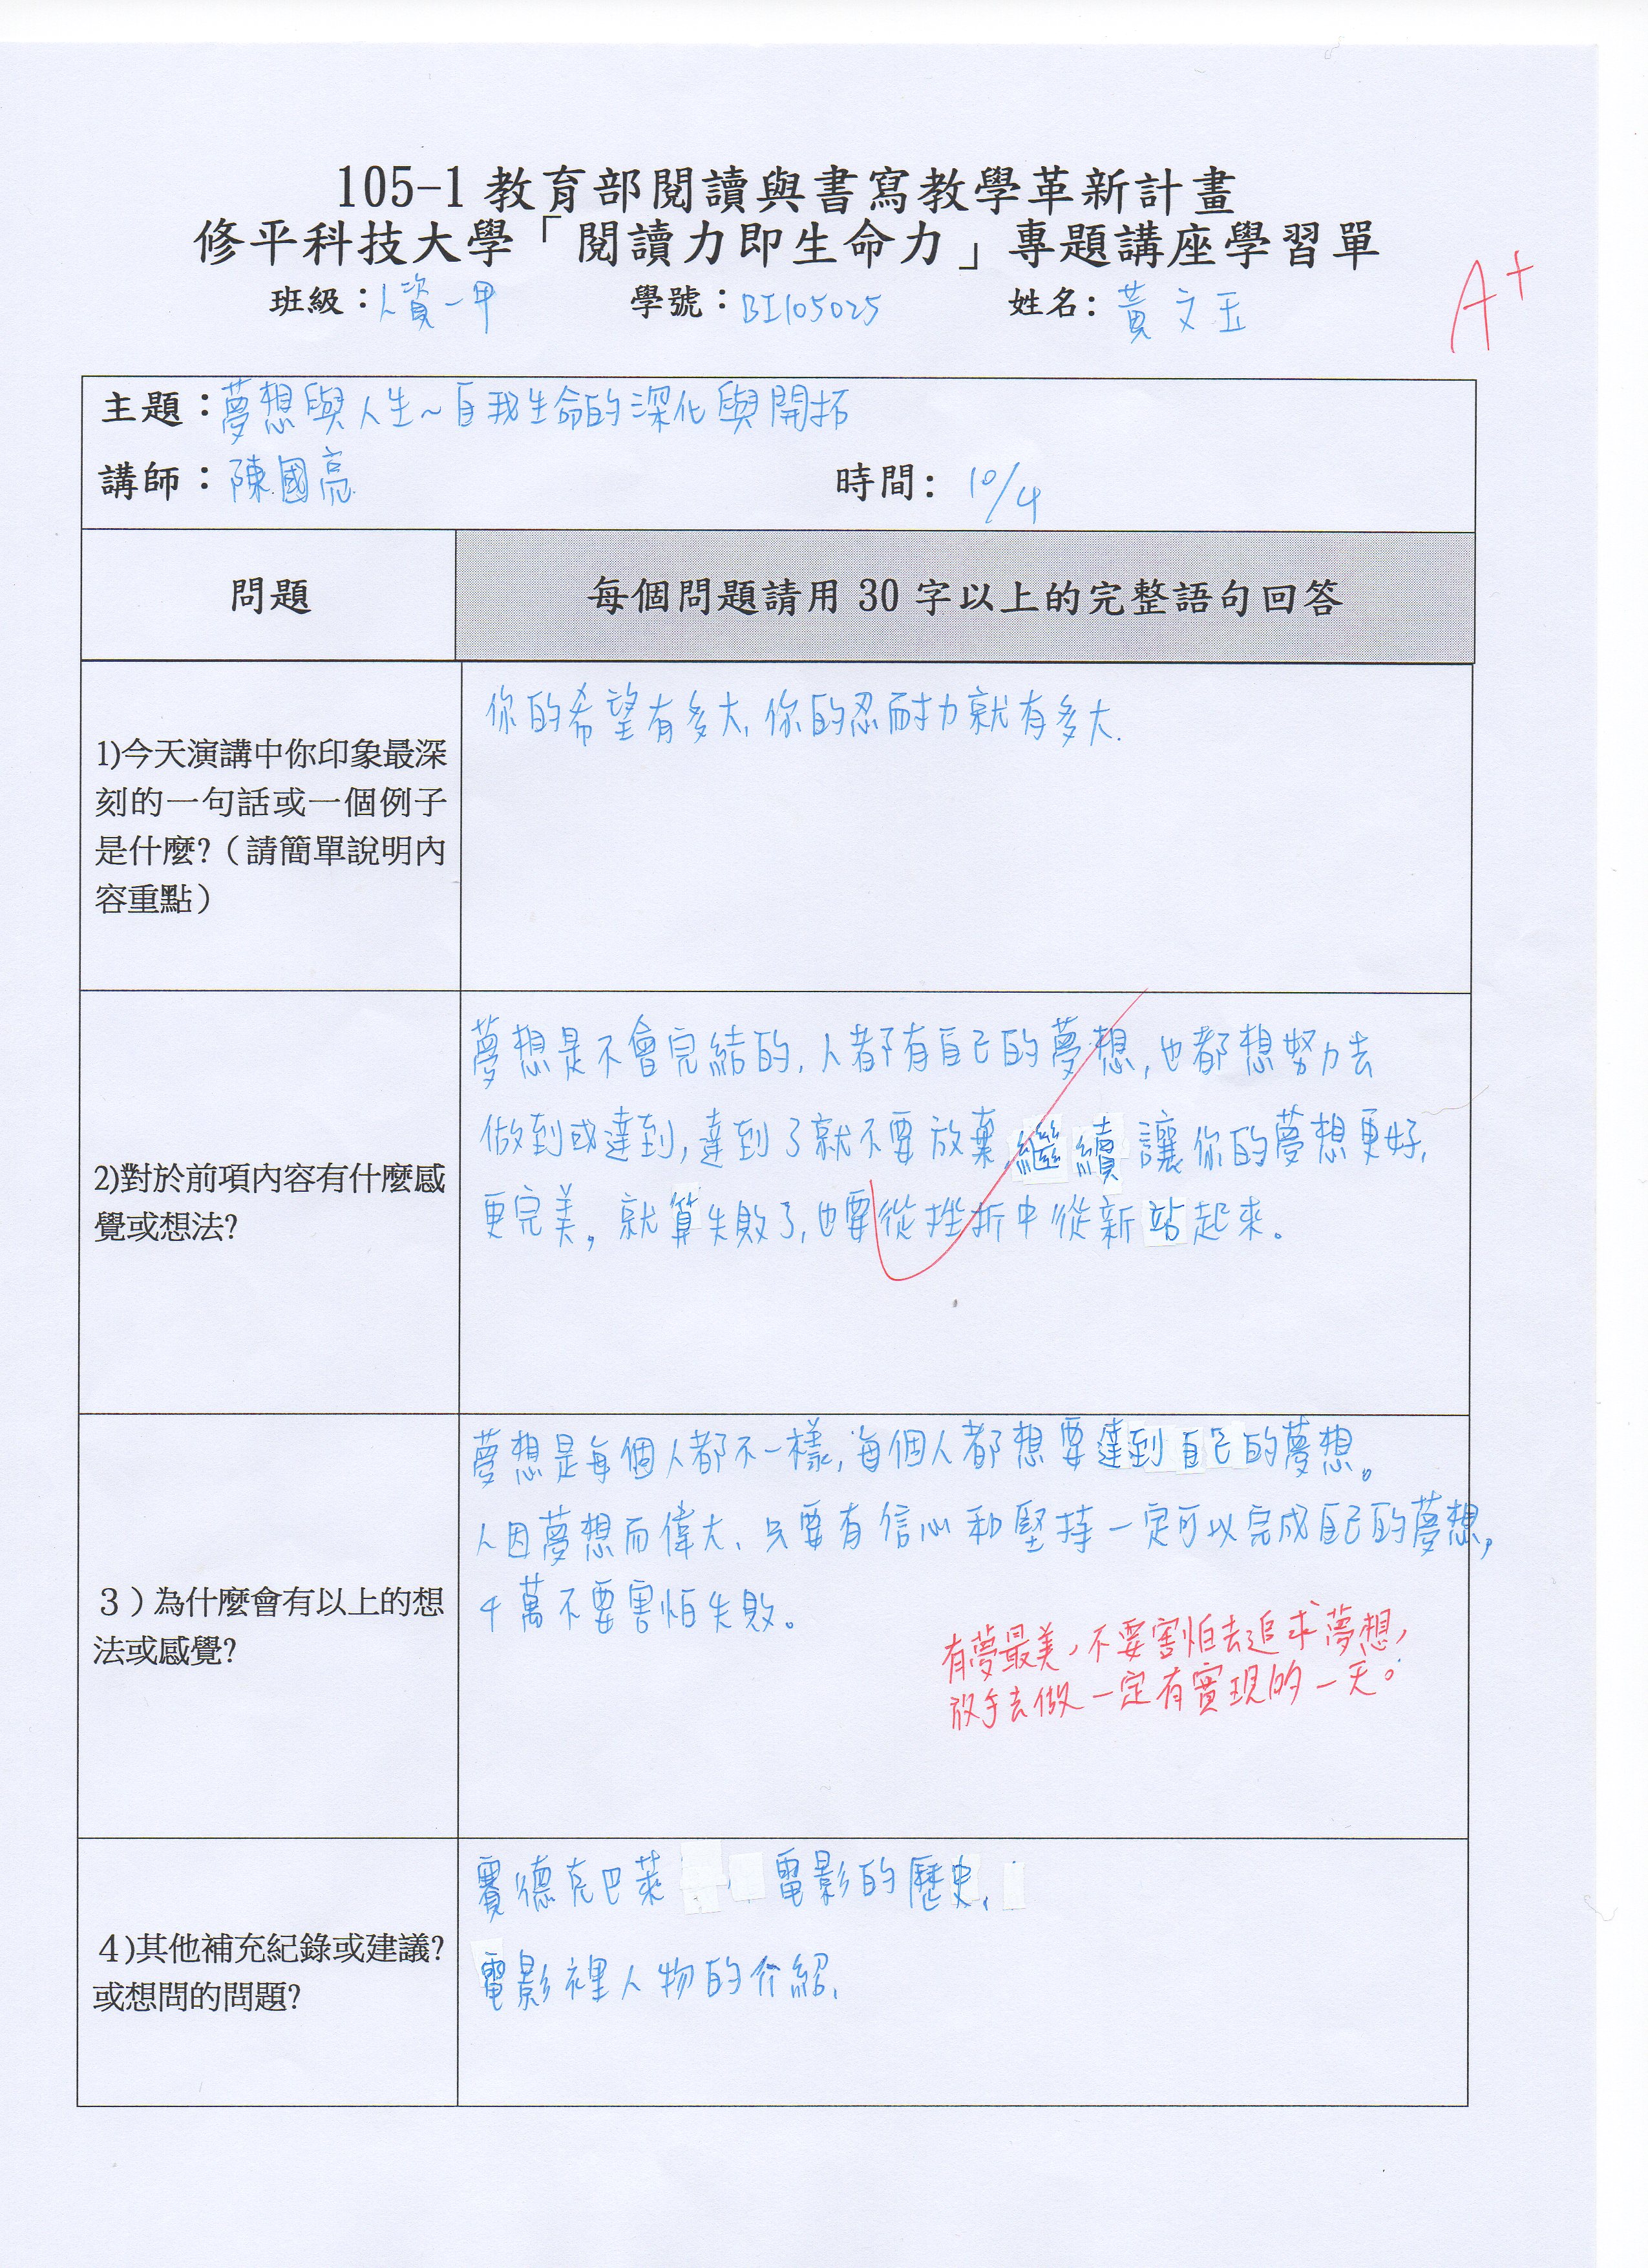 105-1 教育部閱讀與書寫教學革新計畫
修平科技大學「閱讀力即生命力」專題講座學習單
班級：人資一甲 學號：BI105025 姓名：黃文玉
A+
主題：夢想與人生~自我生命的深化與開拓
講師：陳國亮 時間：10/4
問題 每個問題請用 30 字以上的完整語句回答
1)今天演講中你印象最深
刻的一句話或一個例子
是什麼?（請簡單說明內
容重點）
你的希望有多大,你的忍耐力就有多大.
2)對於前項內容有什麼感
覺或想法?
夢想是不會完結的,人都有自己的夢想,也都想努力去
做到或達到,達到了就不要放棄,繼續讓你的夢想更好,
更完美。就算失敗了,也要從挫折中從新站起來。
3）為什麼會有以上的想
法或感覺?
夢想是每個人都不一樣,每個人都想要達到自己的夢想。
人因夢想而偉大、只要有信心和堅持一定可以完成自己的夢想,
千萬不要害怕失敗。
有夢最美，不要害怕去追求夢想，
放手去做一定有實現的一天。
4)其他補充紀錄或建議?
或想問的問題?
賽德克巴萊 電影的歷史、
電影裡人物的介紹.